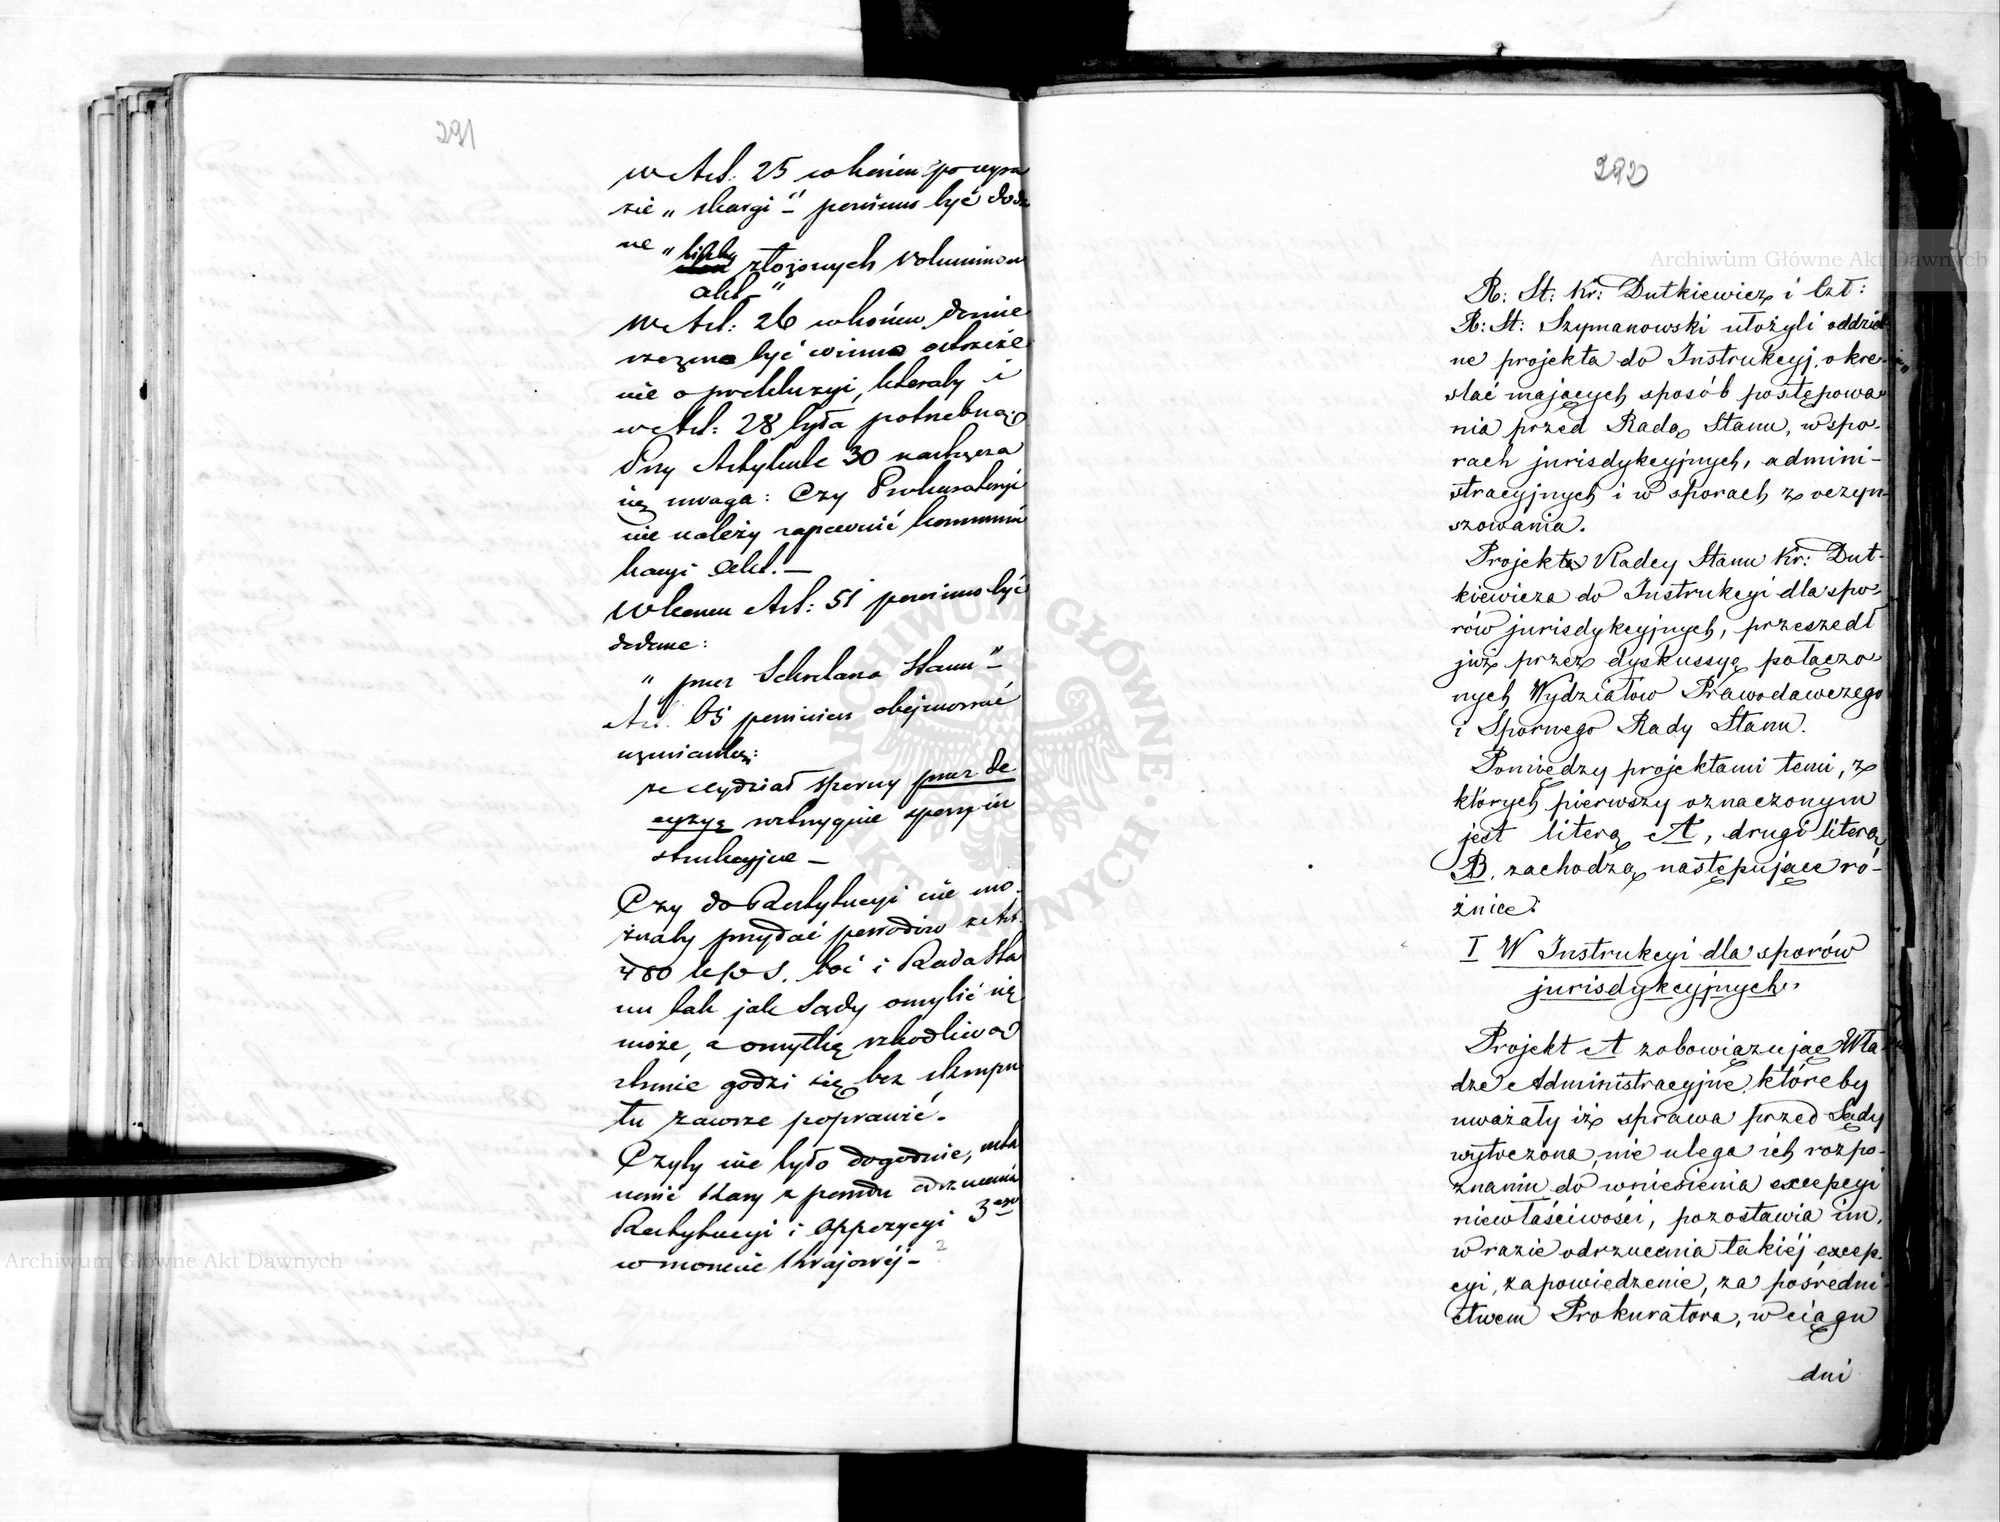 291
w Art: 25 w końcu po wyra
zie „skargi" – powinno być doda
ne „liczby
złożonych voluminów
akt –"
w Art: 26 w końcu domie
szczone być winno ostrzeże
nie o prekluzyi, któraby i
w Art: 28 była potrzebną
Przy Artykule 30 nastręcza
się uwaga: Czy Prokuratoryi
nie należy zapewnić kommuni
kacyi Akt. –
W końcu Art: 51 powinno być
dodane:
„przez Sekretarza Stanu" –
Art. 65 powinien obejmować
wzmiankę:
że Wydział sporny przez de
cyzyę rozstrzygnie spory in
strukcyjne –
Czy do Restytucyi nie mo
żnaby przydać powodów z Art.
480 k p s. boć i Rada Sta
nu tak jak Sądy omylić się
może, a omyłkę szkodliwą
słusznie godzi się bez skrupu
łu zawsze poprawić. –
Czyby nie było dogodnie, usta
nowić kary z powodu odrzucenia
Restytucyi i Oppozycyi 3ciego
w monecie krajowej – ?
292
R: St: Kr: Dutkiewicz i Czł:
R: St: Szymanowski ułożyli oddziel
ne projekta do Instrukcyj, okre-
ślać mających sposób postępowa
nia przed Radą Stanu, w spo-
rach jurisdykcyjnych, admini-
stracyjnych i w sporach z oczyn-
szowania.
Projekt Radcy Stanu Kr: Dut-
kiewicza do Instrukcyi dla spo-
rów jurisdykcyjnych, przeszedł
już przez dyskussyę połączo
nych Wydziałów Prawodawczego
i Spornego Rady Stanu.
Pomiędzy projektami temi, z
których pierwszy oznaczonym
jest literą A, drugi literą
B, zachodzą następujące ró-
żnice:
I W Instrukcyi dla sporów
jurisdykcyjnych.
Projekt A zobowiązując Wła
dze Administracyjne, któreby
uważały iż sprawa przed Sądy
wytoczona, nie ulega ich rozpo-
znaniu do wniesienia excepcyi
niewłaściwości, pozostawia im,
w razie odrzucenia takiéj excep-
cyi, zapowiedzenie, za pośredni-
ctwem Prokuratora, w ciągu
dni
Archiwum Główne Akt Dawnych
Archiwum Główne Akt Dawnych
ARCHIWUM GŁÓWNE AKT DAWNYCH